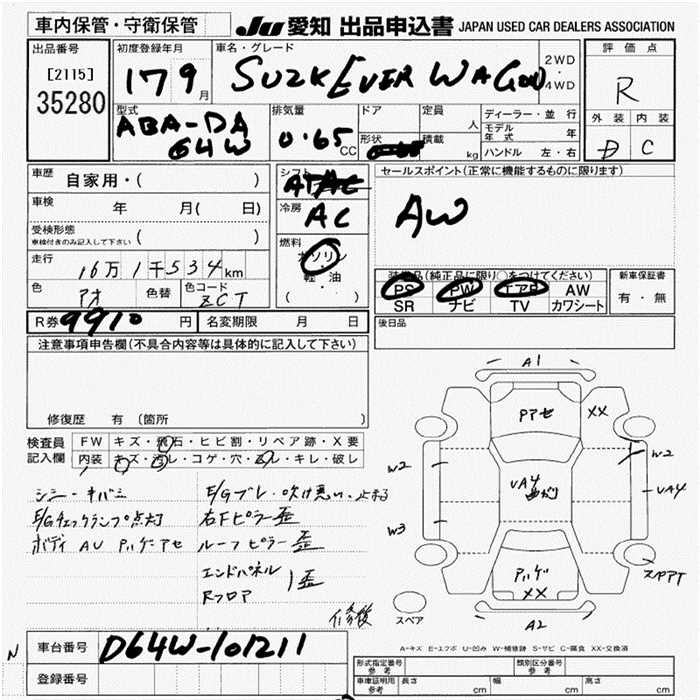 車内保管・守衛保管
JU 愛知 出品申込書 JAPAN USED CAR DEALERS ASSOCIATION
出品番号
[2115]
35280
初度登録年月
17 9 月
車名・グレード
SUZK EVER WAGON
2WD・4WD
評価点
R
外装 内装
D C
型式
ABA-DA
64W
排気量
0.65 CC
ドア
形状
定員 人
積載 kg
ディーラー・並行
モデル年式 年
ハンドル 左・右
車歴 自家用・( )
車検 年 月( 日)
受検形態
車検付きのみ記入して下さい ( )
走行 16万1千534km
色 アオ
色替
色コード ZCT
シフト
AT
冷房
AC
燃料
ガソリン
軽油
( )
セールスポイント(正常に機能するものに限ります)
AW
装備品(純正品に限り○をつけてください)
PS PW エアB AW
SR ナビ TV カワシート
新車保証書
有・無
R券 9910 円
名変期限 月 日
後日品
注意事項申告欄(不具合内容等は具体的に記入して下さい)
修復歴 有(箇所 )
検査員記入欄
FW キズ・飛石・ヒビ割・リペア跡・X要
内装 キズ・汚レ・コゲ・穴・スレ・キレ・破レ
E/Gチェックランプ点灯
右Fピラー歪
ルーフピラー歪
エンドパネル
Rフロア
歪
修復
A1
XX
W2
W3
UA4
UA4
W2
XX
A2
スペア
A-キズ E-エクボ U-凹み W-補修跡 S-サビ C-腐食 XX-交換済
N
車台番号 D64W-101211
登録番号
形式指定番号 参考
類別区分番号 参考
車庫証明用 参考
長さ cm
幅 cm
高さ cm